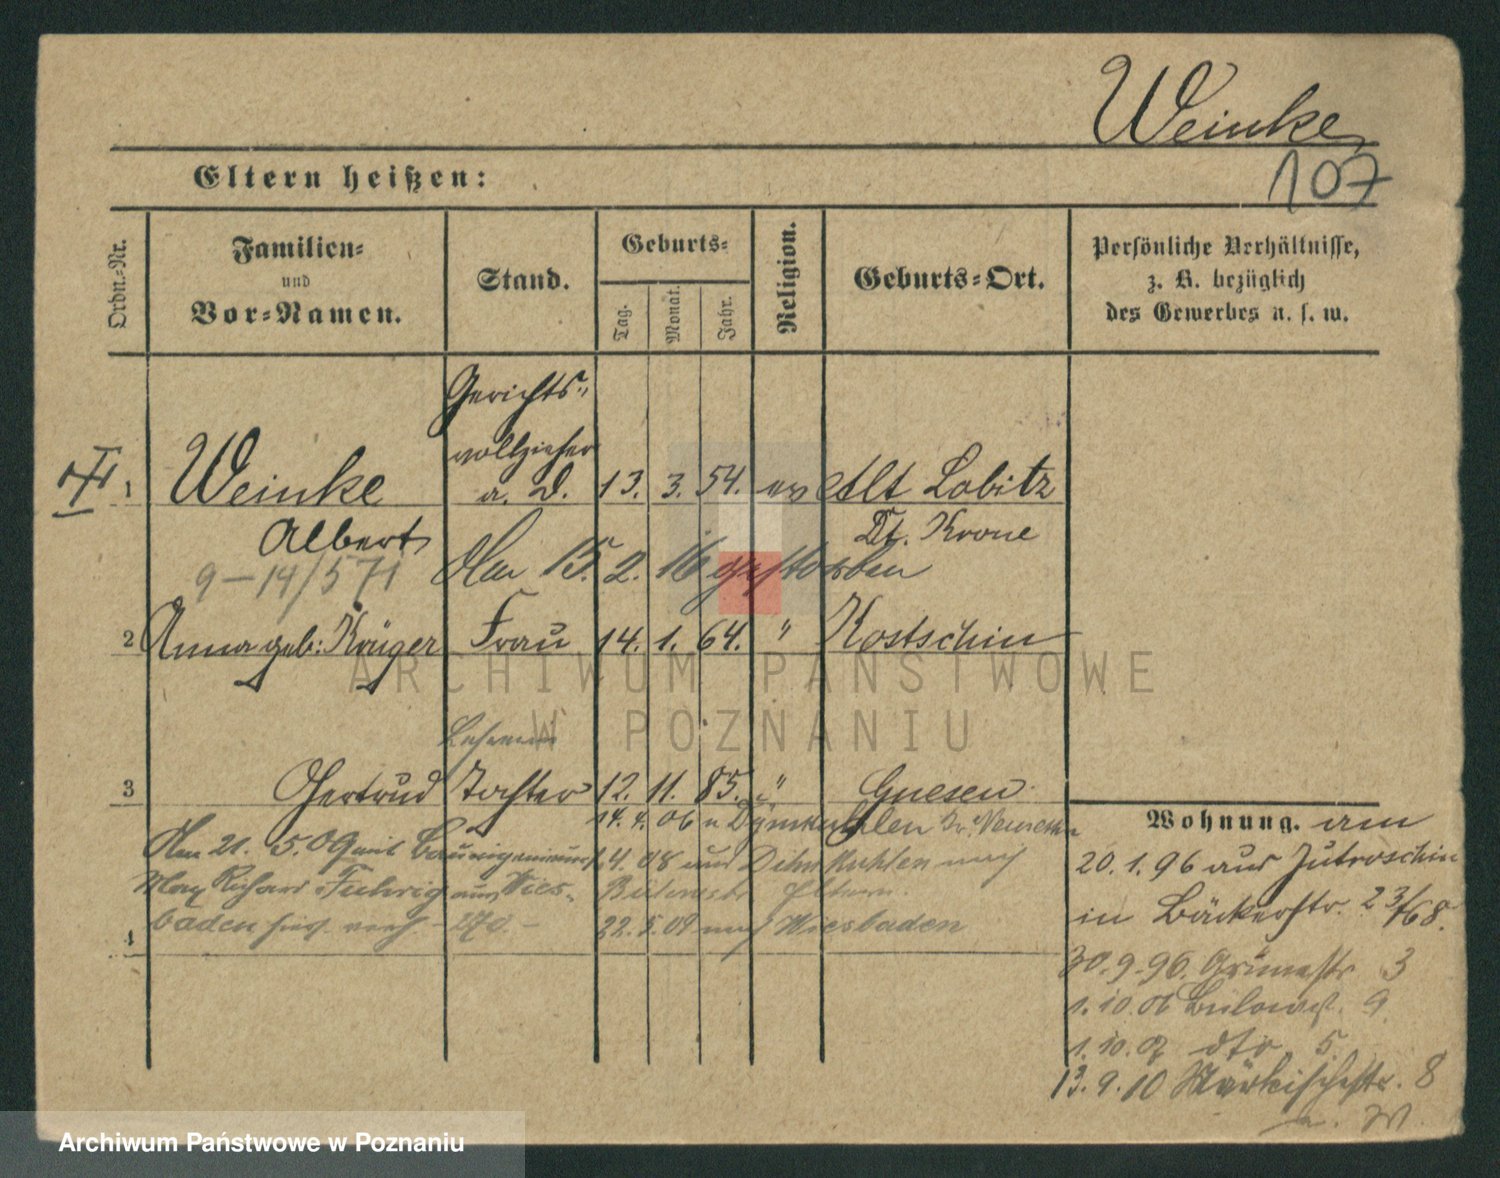 Weinke
107
Eltern heißen:
Ordn.-Nr.
Familien-
und
Vor-Namen.
Stand.
Geburts-
Tag.
Monat.
Jahr.
Religion.
Geburts-Ort.
Persönliche Verhältnisse,
z. B. bezüglich
des Gewerbes u. s. w.
Gerichts-
vollzieher
1 Weinke a. D. 13. 3. 54. ev Alt Lobitz
Albert Dt. Krone
9-14/571 Am 15. 2. 16 gestorben
2 Anna geb: Krüger Frau 14. 1. 64. " Kostschin
Lehrerin
3 Gertrud Tochter 12. 11. 85. " Gnesen
14. 4. 06 n
Wohnung. am
Am 21. 5. 09 mit
1.4.08 aus nach
20.1.96 aus Jutroschin
Max Richard aus Wies-
Eltern.
in Bäckerstr. 23/
baden
22.5.09 nach Wiesbaden
4
30.9.96. Grünestr 3
1.10.06 Bülowst. 9
1.10.07 dto 5.
13.9.10 Märkischestr. 8
ARCHIWUM PAŃSTWOWE
W POZNANIU
Archiwum Państwowe w Poznaniu